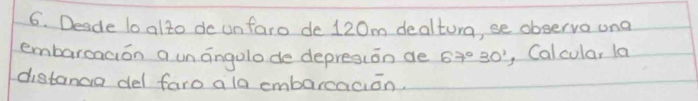 6. Desde lo alto de un faro de 120m de altura, se observa una
embarcación a un ángulo de depresión de 67° 30', Calcular la
distancia del faro a la embarcación.